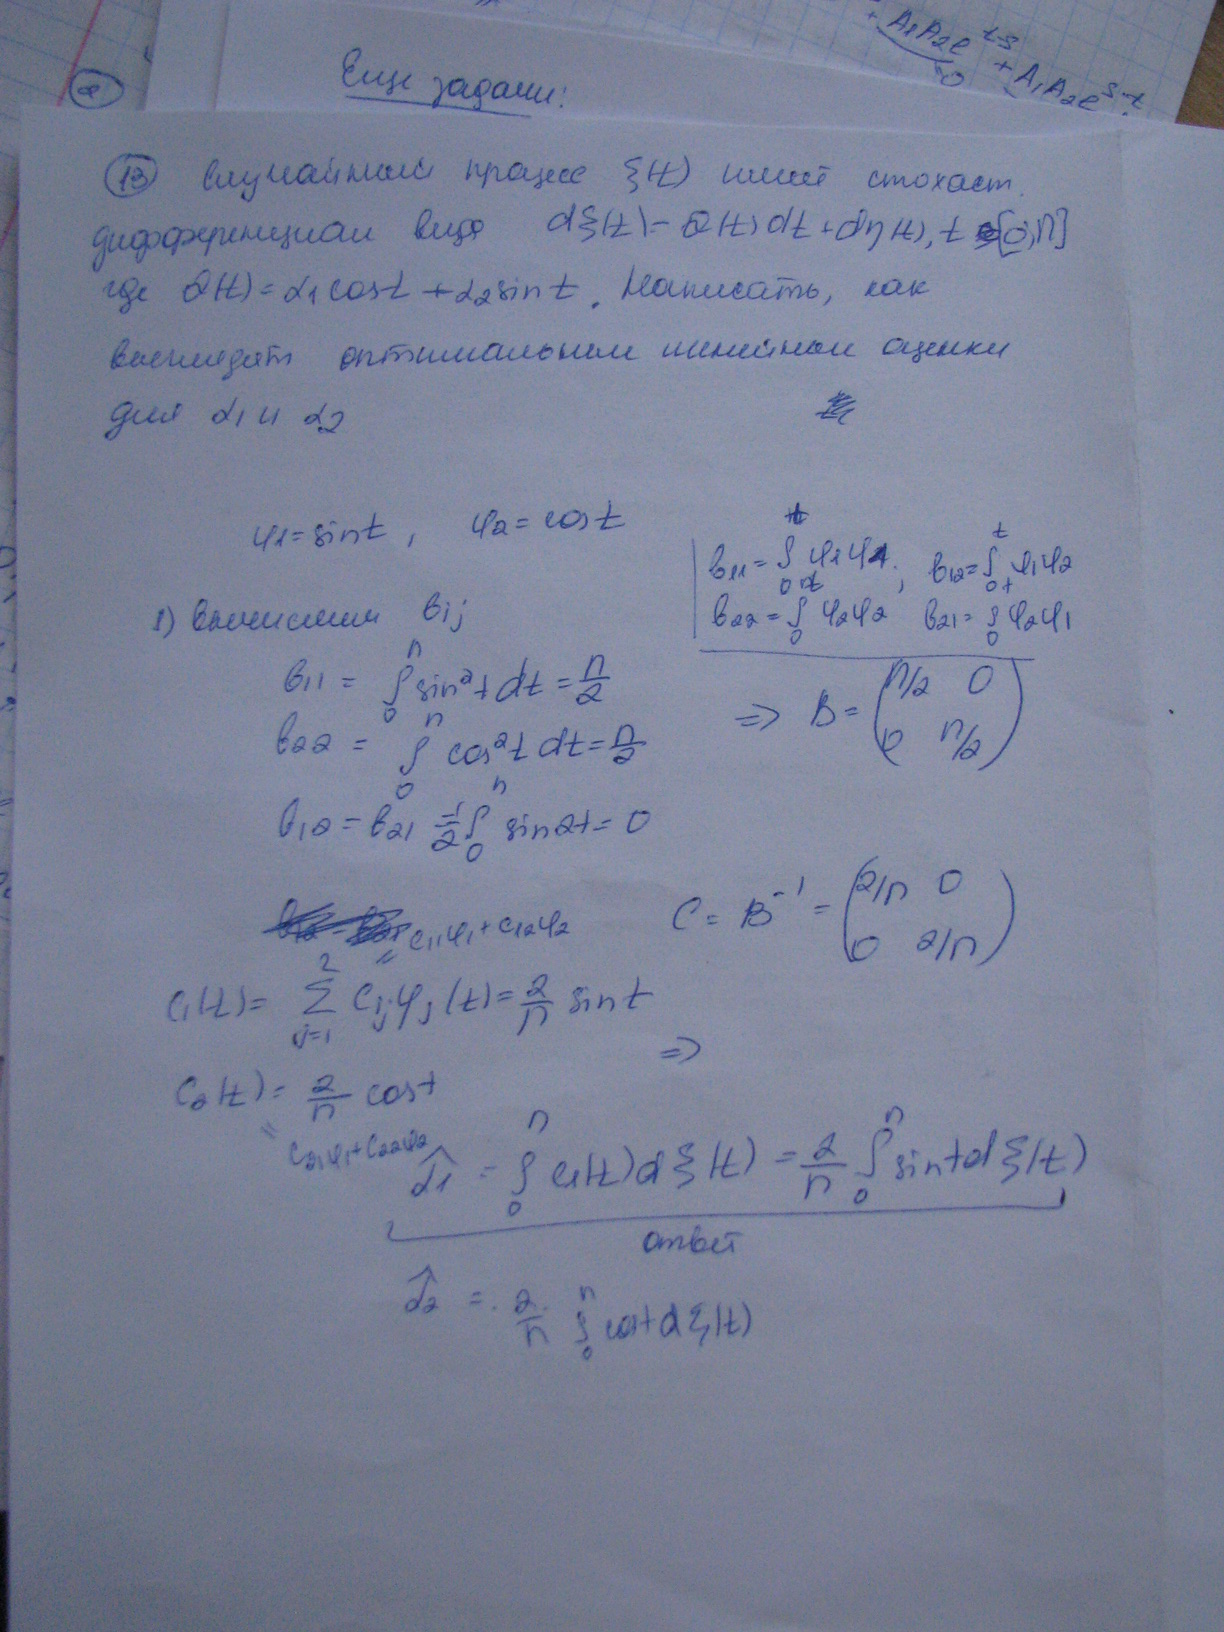 + A₁A₂e^{t-s} + A₁A₂e^{s-t}
0
Еще задачи:
13 Случайный процесс ξ(t) имеет стохаст.
дифференциал вида dξ(t) = θ(t)dt + dη(t), t [0, π]
где θ(t) = α₁cost + α₂sint. Написать, как
выглядят оптимальные линейные оценки
для α₁ и α₂
φ₁ = sint, φ₂ = cost
b₁₁ = ∫₀ φ₁φ₁; b₁₂ = ∫₀ᵗ φ₁φ₂
b₂₂ = ∫₀ᵗ φ₂φ₂ b₂₁ = ∫₀ᵗ φ₂φ₁
1) Вычислим bij
b₁₁ = ∫₀^π sin²t dt = π/2
b₂₂ = ∫₀^π cos²t dt = π/2
⇒ B = (π/2 0; 0 π/2)
b₁₂ = b₂₁ = 1/2 ∫₀^π sin2t = 0
= c₁₁φ₁ + c₁₂φ₂
C = B⁻¹ = (2/π 0; 0 2/π)
c₁(t) = Σ_{j=1}^{2} c₁ⱼφⱼ(t) = 2/π sint
⇒
c₂(t) = 2/π cost
= c₂₁φ₁ + c₂₂φ₂
α̂₁ = ∫₀^π c₁(t)dξ(t) = 2/π ∫₀^π sint dξ(t)
ответ
α̂₂ = 2/π ∫₀^π cost dξ(t)